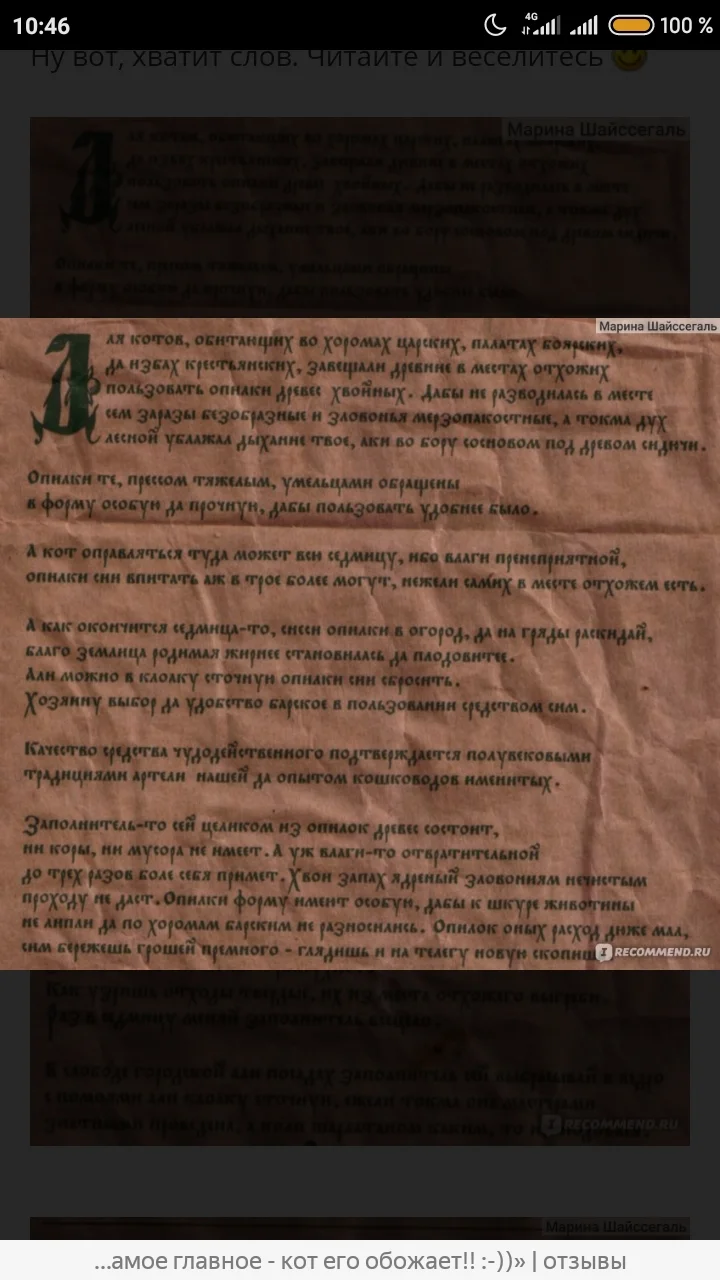 10:46
4G
100 %
Ну вот, хватит слов. Читайте и веселитесь
Марина Шайссегаль
Марина Шайссегаль
Для котов, обитающих во хоромах царских, палатах боярских,
да избах крестьянских, завещали древние в местах отхожих
пользовать опилки древес хвойных. Дабы не разводилась в месте
сем заразы безобразные и зловонья мерзопакостные, а токма дух
лесной ублажал дыхание твое, аки во бору сосновом под древом сидючи.
Опилки те, прессом тяжелым, умельцами обращены
в форму особую да прочную, дабы пользовать удобнее было.
А кот оправляться туда может всю седмицу, ибо влаги пренеприятной,
опилки сии впитать аж в трое более могут, нежели самих в месте отхожем есть.
А как окончится седмица-то, снеси опилки в огород, да на гряды раскидай,
благо землица родимая жирнее становилась да плодовитее.
Али можно в клоаку сточную опилки сии сбросить.
Хозяину выбор да удобство барское в пользовании средством сим.
Качество средства чудодейственного подтверждается полувековыми
традициями артели нашей да опытом кошководов именитых.
Заполнитель-то сей целиком из опилок древес состоит,
ни коры, ни мусора не имеет. А уж влаги-то отвратительной
до трех разов боле себя примет. Хвои запах ядреный зловониям нечистым
проходу не даст. Опилки форму имеют особую, дабы к шкуре животины
не липли да по хоромам барским не разносились. Опилок оных расход диже мал,
сим бережешь грошей премного - глядишь и на телегу новую скопишь
IRECOMMEND.RU
IRECOMMEND.RU
Марина Шайссегаль
...амое главное - кот его обожает!! :-))» | отзывы